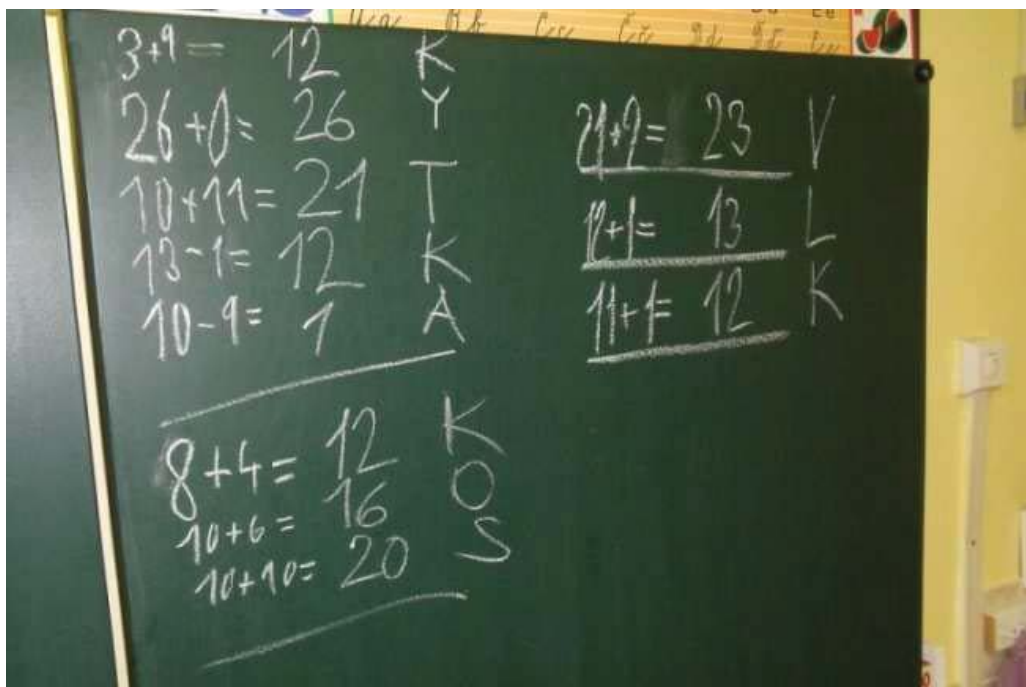 3+9= 12 K
26+0= 26 Y
10+11= 21 T
13-1= 12 K
10-9= 1 A
8+4= 12 K
10+6= 16 O
10+10= 20 S
21+2= 23 V
12+1= 13 L
11+1= 12 K